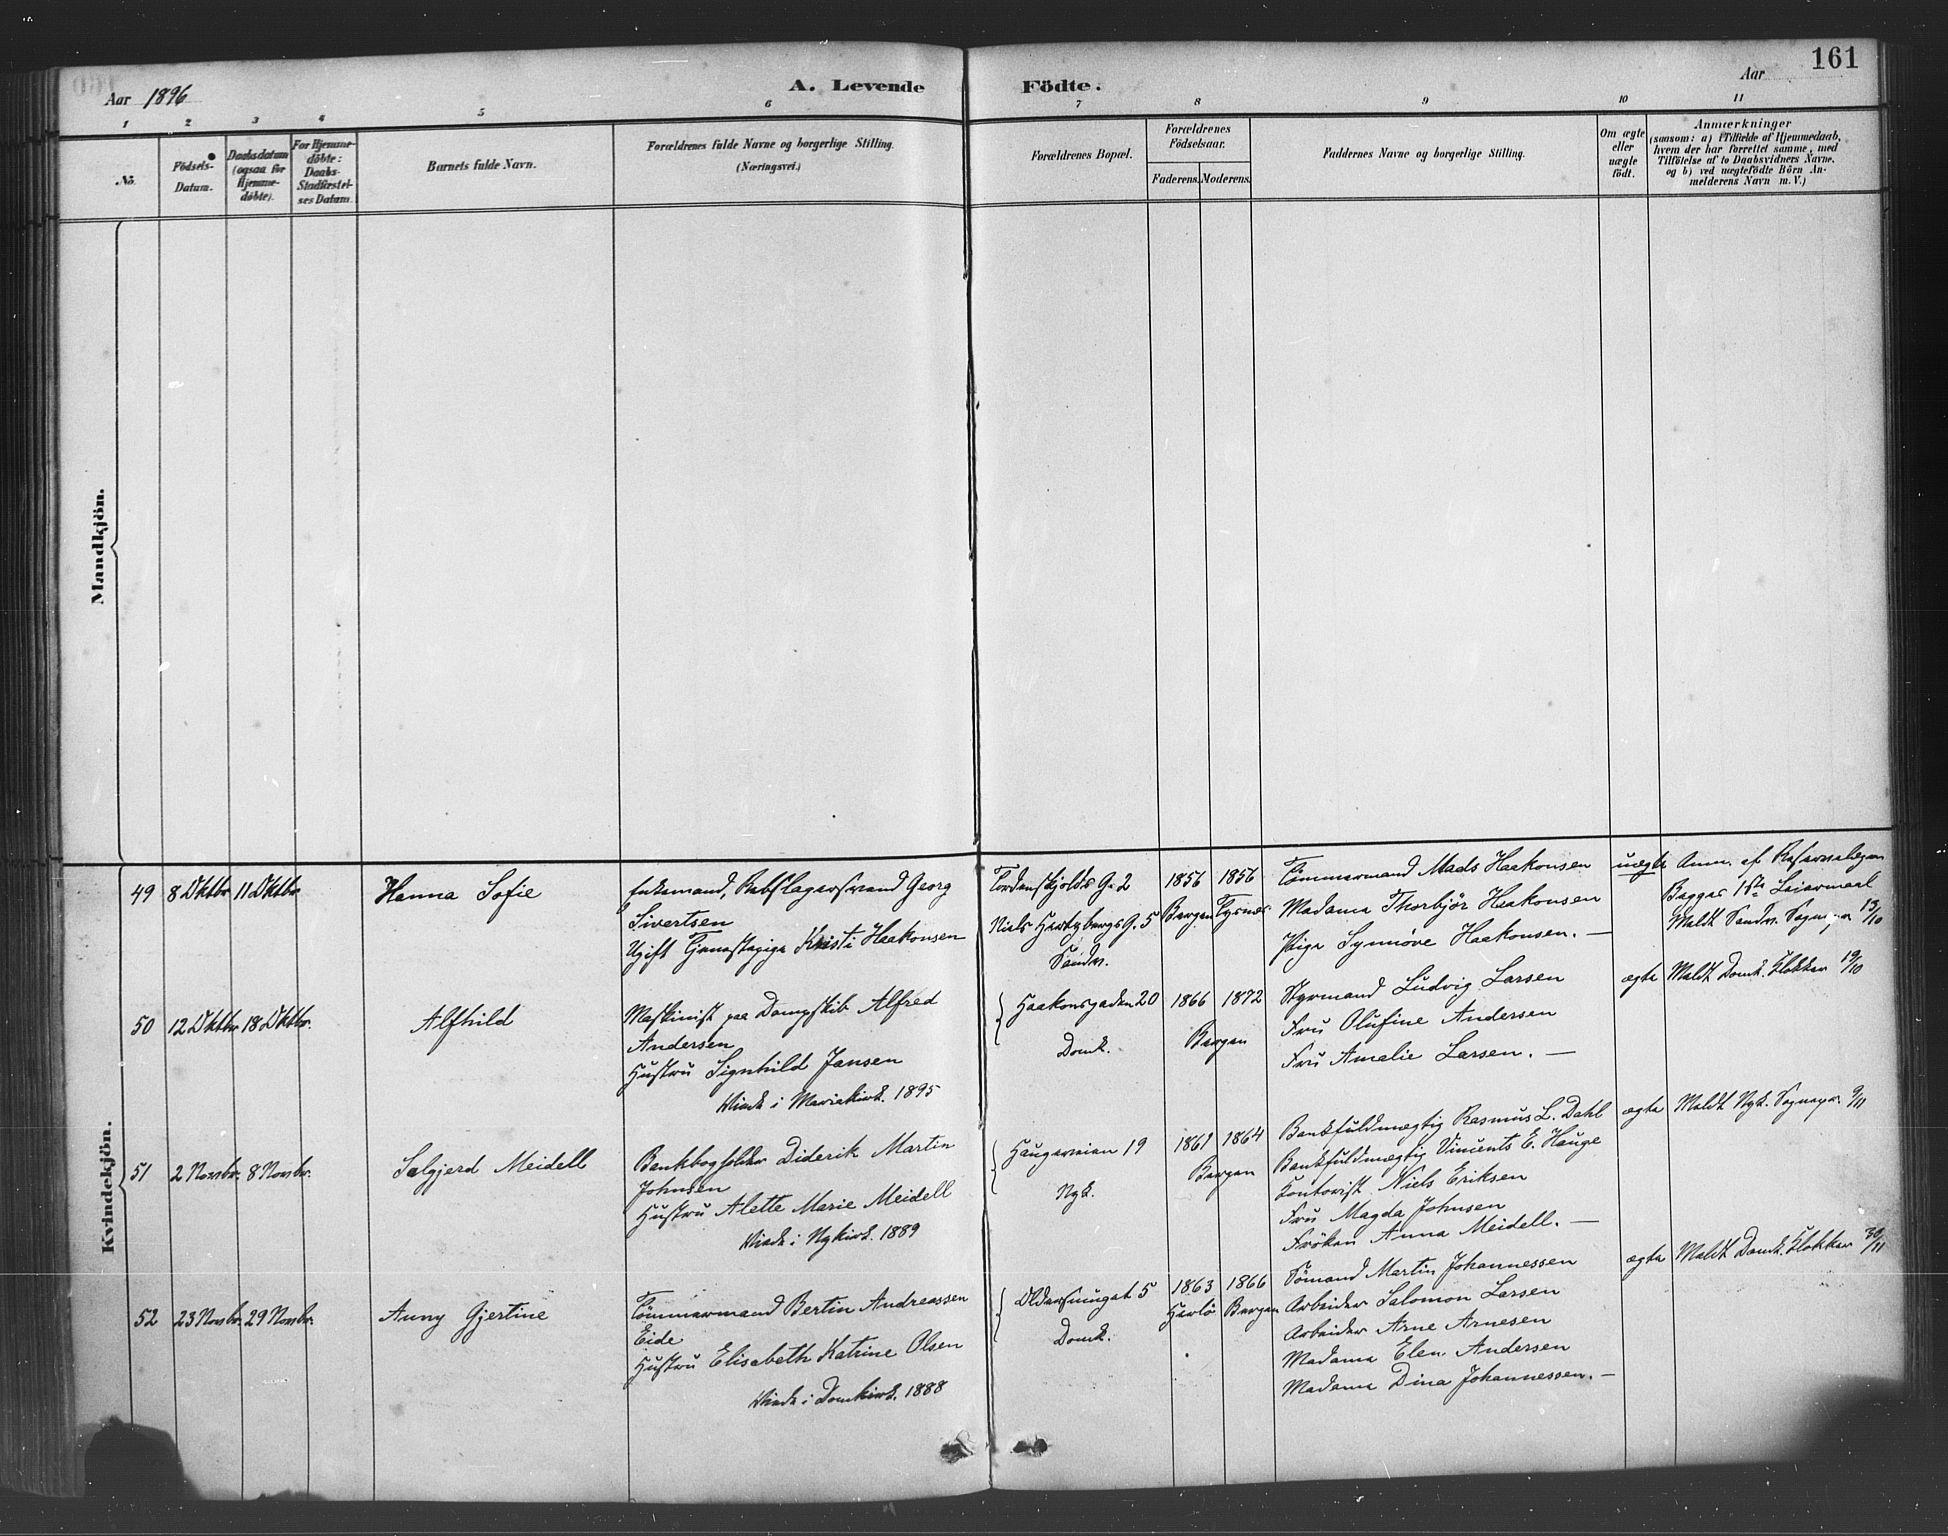 161
Aar 1896
A. Levende
Födte.
Aar
1 2 3 4 5 6 7 8 9 10 11
No.
Födsels-
Datum.
Daabsdatum
(ogsaa för
Hjemme-
döbte).
For Hjemme-
döbte:
Daabs-
Stadfæstel-
ses Datum.
Barnets fulde Navn.
Forældrenes fulde Navne og borgerlige Stilling.
(Næringsvei.)
Forældrenes Bopæl.
Forældrenes
Födselsaar.
Faderens. Moderens.
Faddernes Navne og borgerlige Stilling.
Om ægte
eller
uægte
födt.
Anmærkninger
(saasom: a) i Tilfælde af Hjemmedaab,
hvem der har forrettet samme, med
Tilföielse af to Daabsvidners Navne,
og b) ved uægtefödte Börn An-
melderens Navn m. V.)
Mandkjön.
Kvindekjön.
49 8 Oktbr 11 Oktbr.
Hanna Sofie
Enkemand, Rebslagersvend Georg
Sivertsen
Ugift Tjenestepige Kristi Haakonsen
Tordenskjolds G. 2
Niels Hertzbergs G. 5
Sandv.
1856 1856
Bergen Tysnes
Tømmermand Mads Haakonsen
Madame Thorbjør Haakonsen
Pige Synnöve Haakonsen. —
uægte
Anm. af Reservelægen
Begges 1ste Leiermaal
Meldt Sandv. Sognepr 13/10
50 12 Oktbr 18 Oktbr.
Alfhild
Maskinist paa Dampskib Alfred
Andersen
Hustru Signhild Jansen
Viede i Mariekirk. 1895
Haakonsgaden 20
Domk.
1866 1872
Bergen
Styrmand Ludvig Larsen
Fru Olufine Andersen
Fru Amalie Larsen. —
ægte
Meldt Domk. Klokker 19/10
51 2 Novbr. 8 Novbr.
Salgjerd Meidell
Bankbogholder Diderik Martin
Johnsen
Hustru Alette Marie Meidell
Viede i Nykirk. 1889
Haugeveien 19
Nyk.
1861 1864
Bergen
Bankfuldmægtig Rasmus L. Dahl
Bankfuldmægtig Vincents E. Hauge
Kontorist Niels Eriksen
Fru Magda Johnsen
Fröken Anna Meidell. —
ægte
Meldt Nyk. Sognepr. 9/11
52 23 Novbr. 29 Novbr.
Anny Gjertine
Tömmermand Bertin Andreassen
Eide
Hustru Elisabeth Katrine Olsen
Viede i Domkirk. 1888
5
Domk.
1863 1866
Herlö Bergen
Sömand Martin Johannessen
Arbeider Salomon Larsen
Arbeider Arne Arnesen
Madame Elen Andersen
Madame Dina Johannessen. —
ægte
Meldt Domk. Klokker 30/11